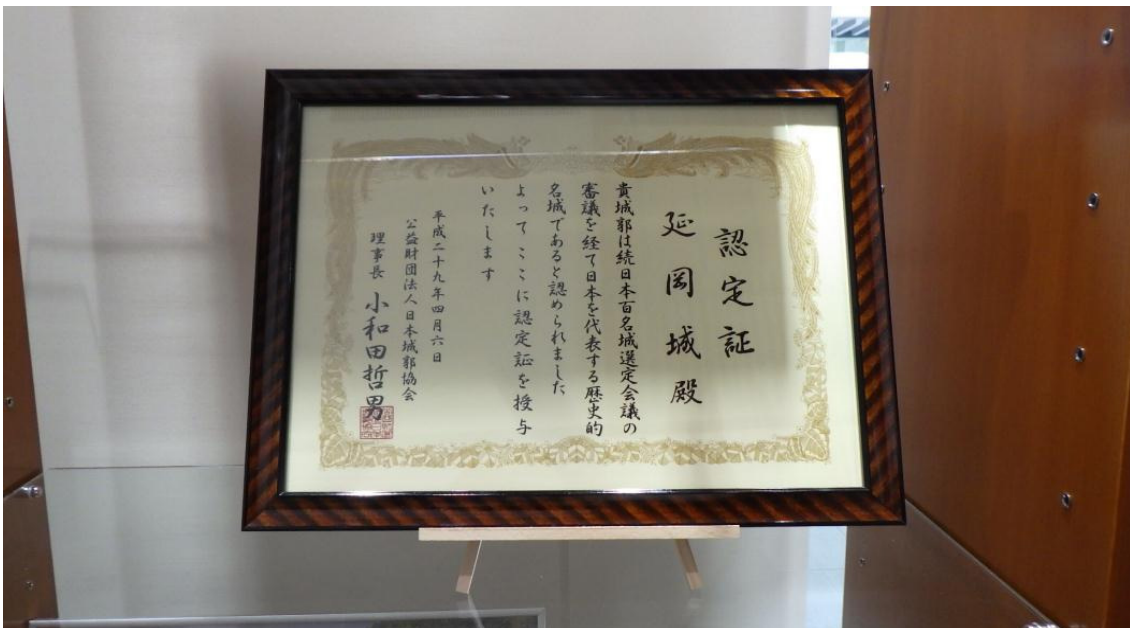 認定証
延岡城殿
貴城郭は続日本百名城選定会議の
審議を経て日本を代表する歴史的
名城であると認められました
よってここに認定証を授与
いたします
平成二十九年四月六日
公益財団法人日本城郭協会
理事長 小和田哲男